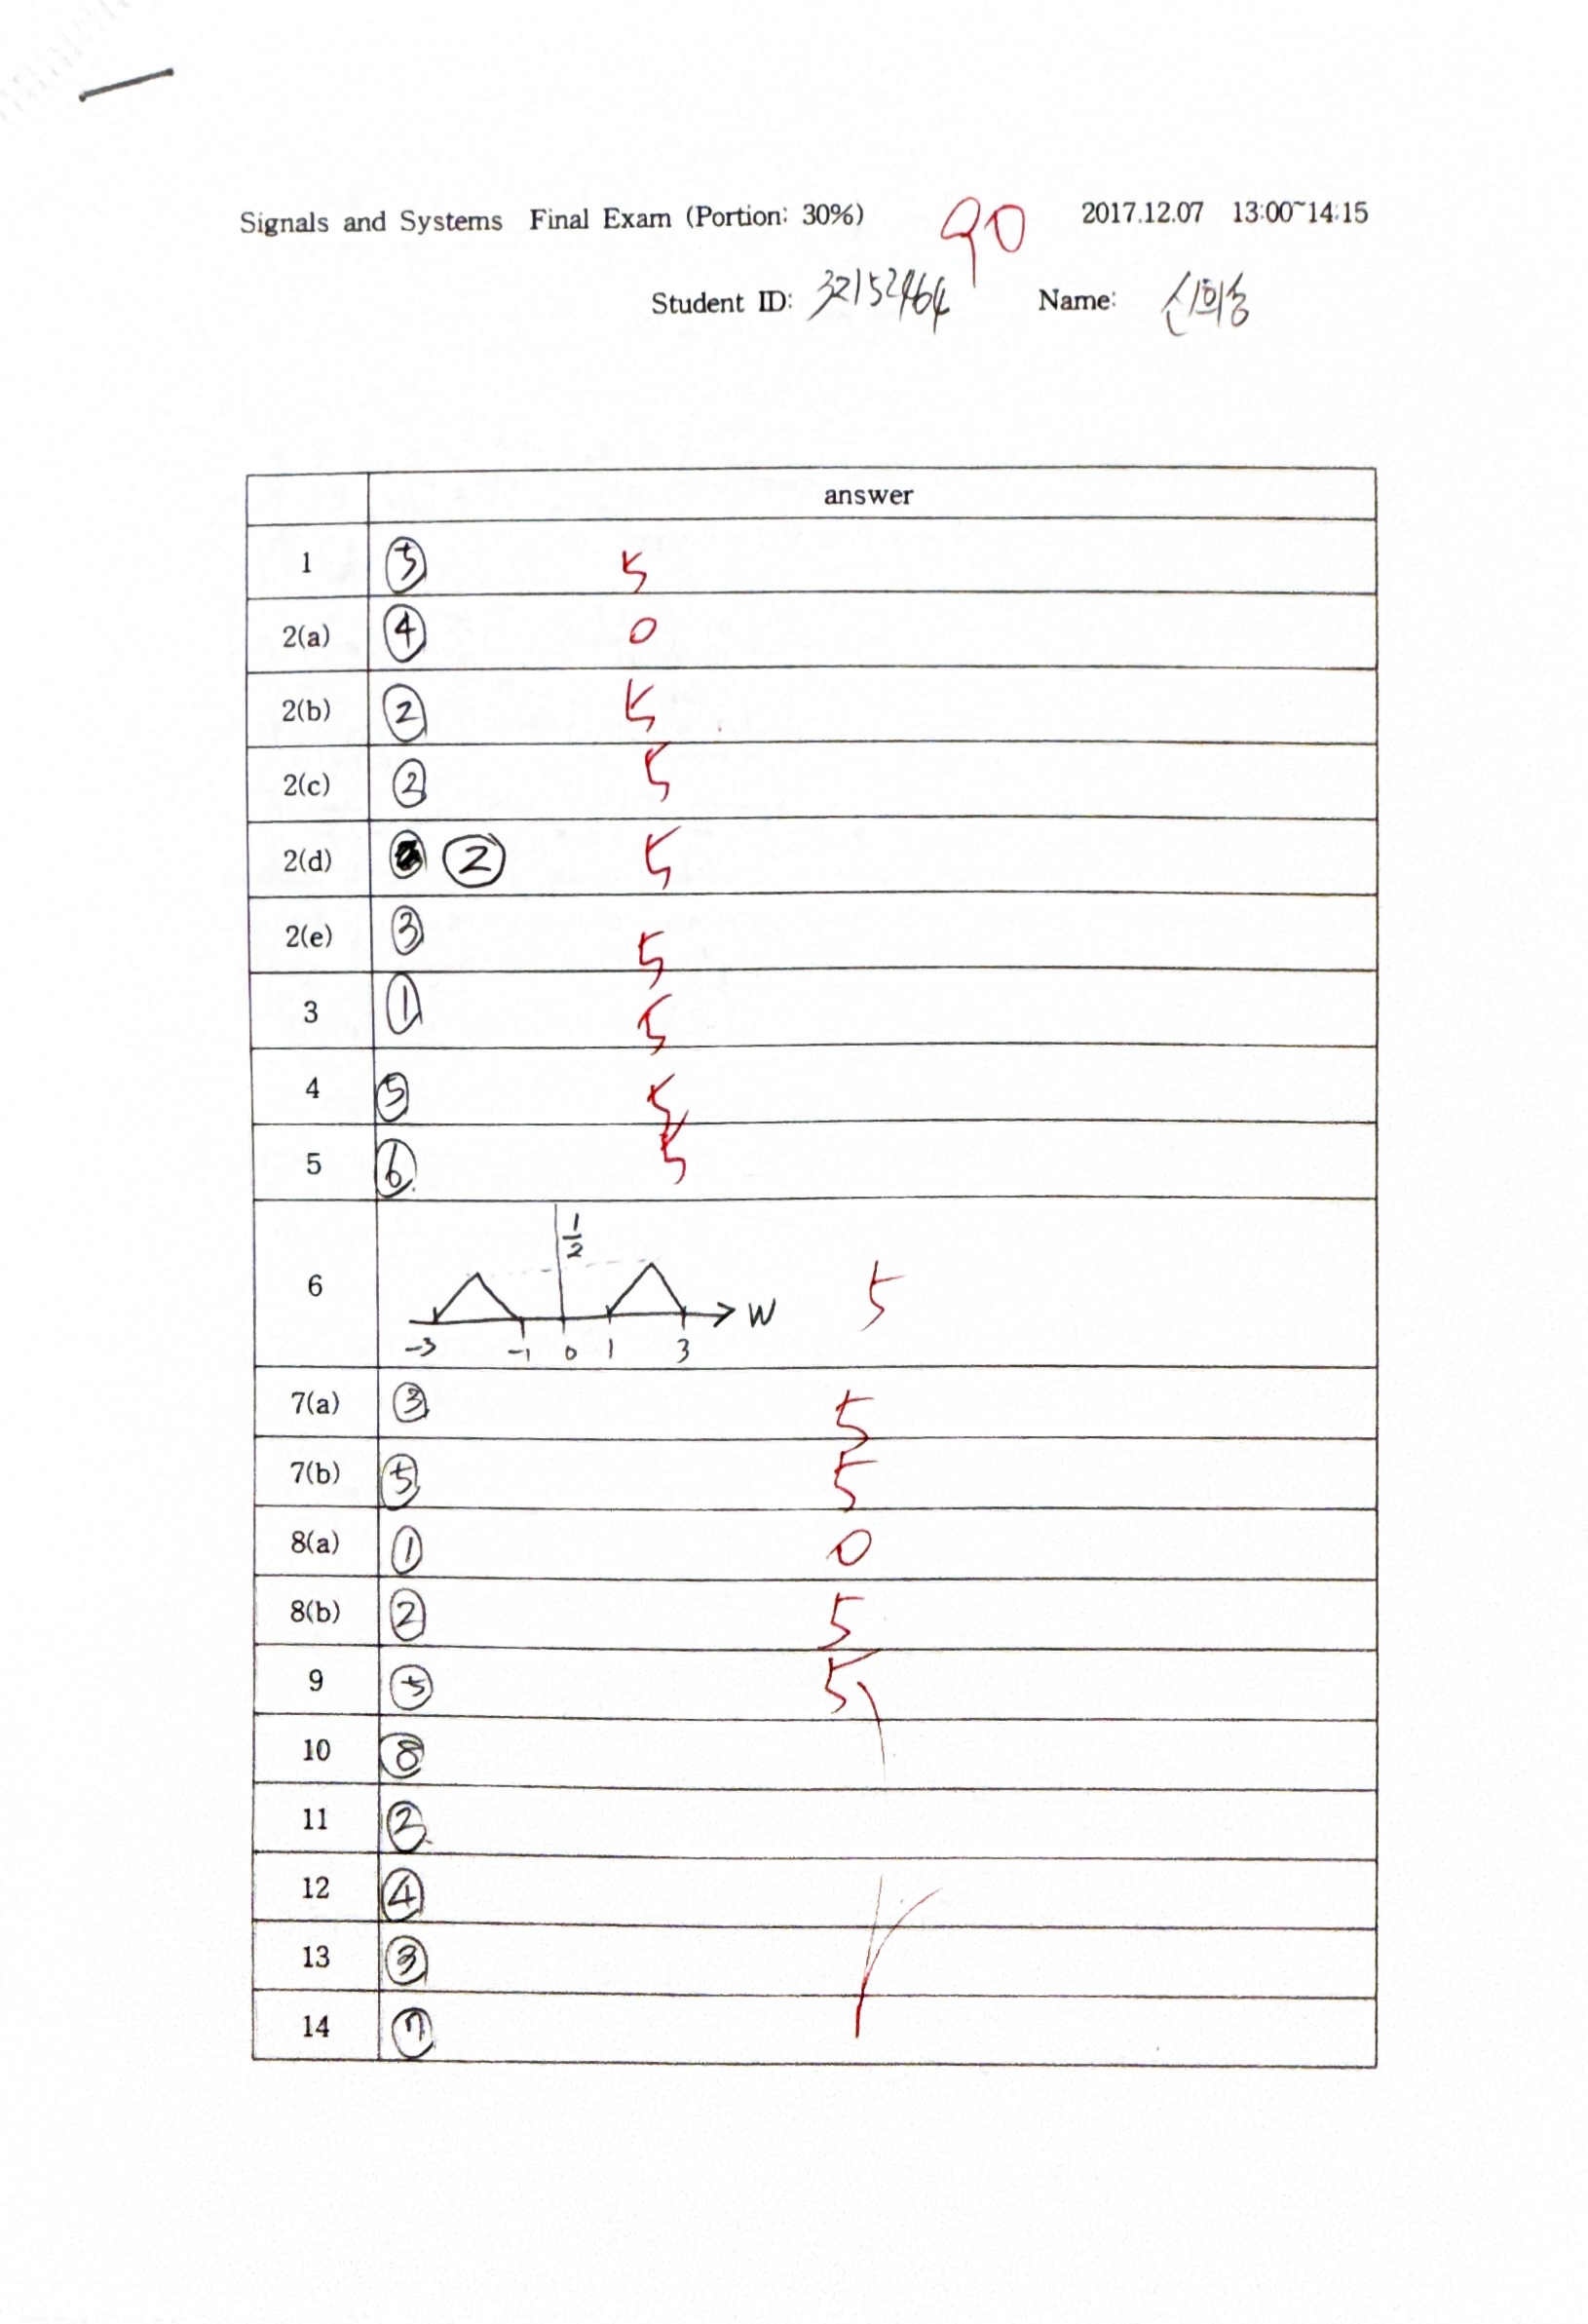 Signals and Systems Final Exam (Portion: 30%) 90 2017.12.07 13:00~14:15
Student ID: 32152464 Name: 신희승
answer
1 ⑤ 5
2(a) ④ 0
2(b) ② 5
2(c) ② 5
2(d) ② 5
2(e) ③ 5
3 ① 5
4 ⑤ 5
5 ⑥ 5
1/2
6 5
W
-3 -1 0 1 3
7(a) ③ 5
7(b) ⑤ 5
8(a) ① 0
8(b) ② 5
9 ⑤ 5
10 ⑧
11 ②
12 ④
13 ③
14 ⑦